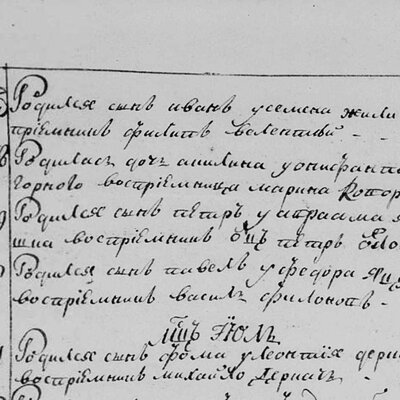 Родился сынъ иванъ у семена жили
прїемникъ филипъ валентїй
Родилась дочъ акилина у онисифа
горного воспрїемница марина
Родился сынъ петръ у
шна воспрїемникъ ѿцъ петръ
Родился сынъ павелъ у федора яц
воспрїемникъ василь филоноъ
мцъ їюль
Родился сынъ фома у леонтїя дерк
воспрїемникъ михайло деркачъ